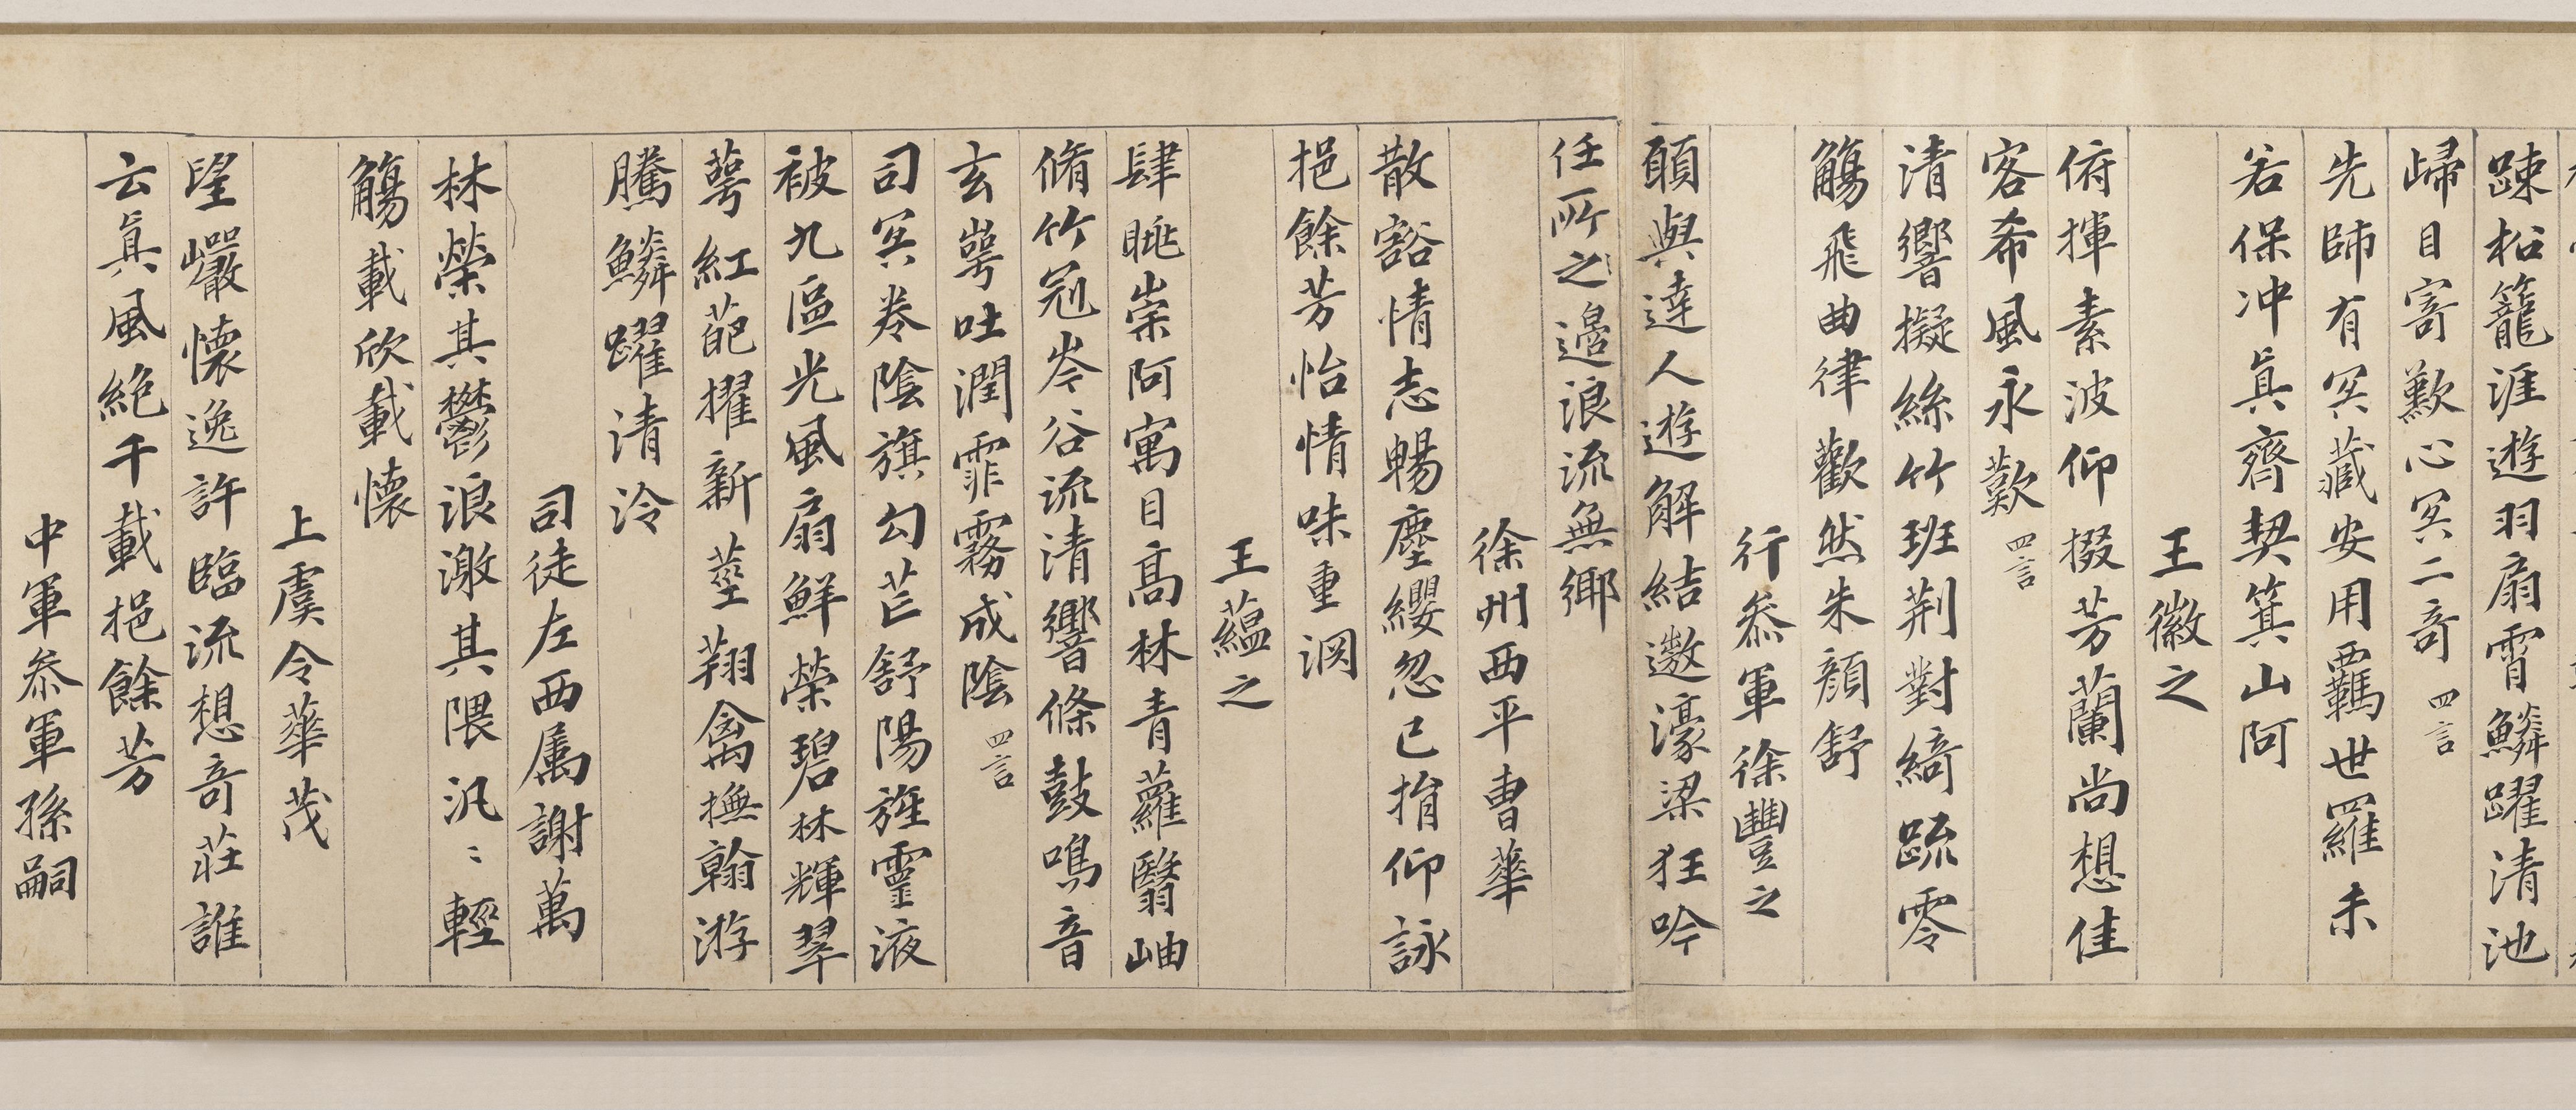 踈松籠涯遊羽扇霄鱗躍清池
歸目寄歎心冥二奇 四言
先師有冥藏安用羈世羅未
若保冲真齊契箕山阿
王徽之
俯揮素波仰掇芳蘭尚想佳
客希風永歎 四言
清響擬絲竹班荆對綺疏零
觴飛曲律歡然朱顔舒
行叅軍徐豐之
願與達人遊解結遨濠梁狂吟
任所之邉浪流無鄉
徐州西平曹華
散豁情志暢塵纓忽已捐仰詠
挹餘芳怡情味重淵
王蘊之
肆眺崇阿寓目髙林青蘿翳岫
脩竹冠岑谷流清響條鼓鳴音
玄崿吐潤霏霧成陰 四言
司冥卷陰旗勾芒舒陽旌靈液
被九區光風扇鮮榮碧林輝翠
萼紅葩擢新莖翔禽撫翰游
騰鱗躍清泠
司徒左西属謝萬
林榮其鬱浪激其隈汎〻輕
觴載欣載懷
上虞令華茂
望巖懷逸許臨流想奇莊誰
云真風絶千載挹餘芳
中軍叅軍孫嗣